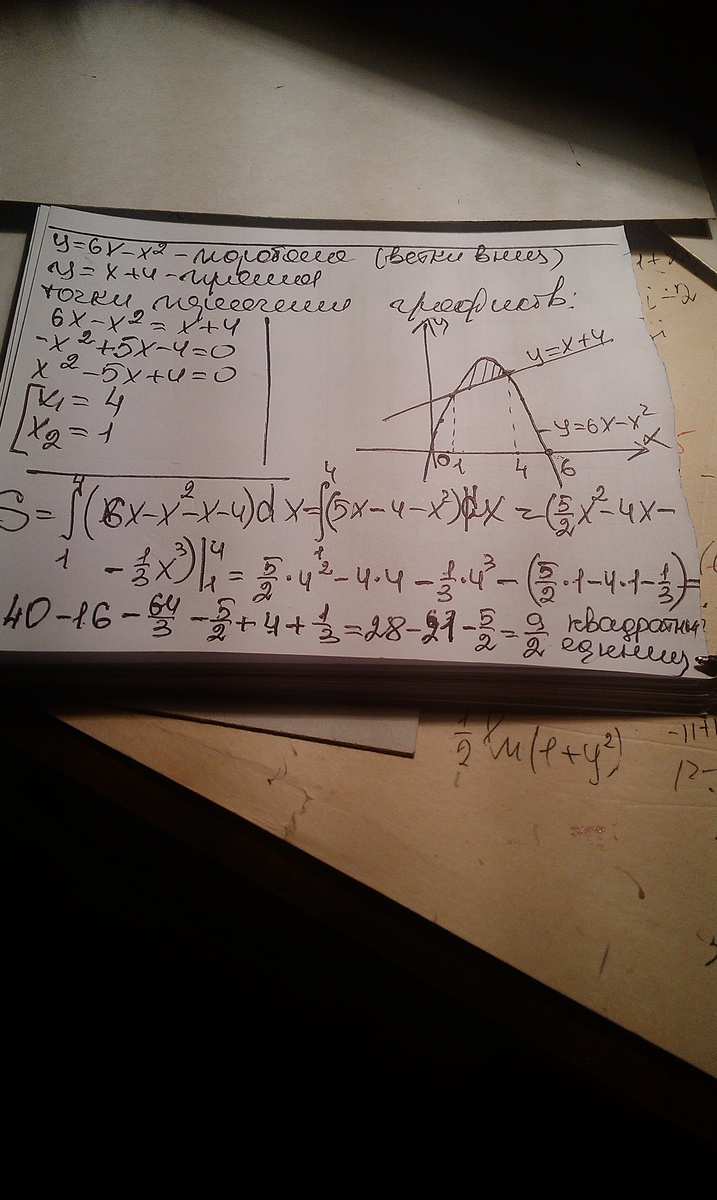 y=6x-x² - парабола (ветки вниз)
y=x+4 - прямая
точки пересечения графиков:
6x-x²=x+4
-x²+5x-4=0
x²-5x+4=0
[x₁=4
x₂=1
y
y=x+4
y=6x-x²
x
0 1 4 6
S=∫₁⁴(6x-x²-x-4)dx=∫₁⁴(5x-4-x²)dx=(5/2x²-4x-
-1/3x³)|₁⁴=5/2·4²-4·4-1/3·4³-(5/2·1-4·1-1/3)=
40-16-64/3-5/2+4+1/3=28-21-5/2=9/2 квадратных
единиц
1/2 ln(1+y²)